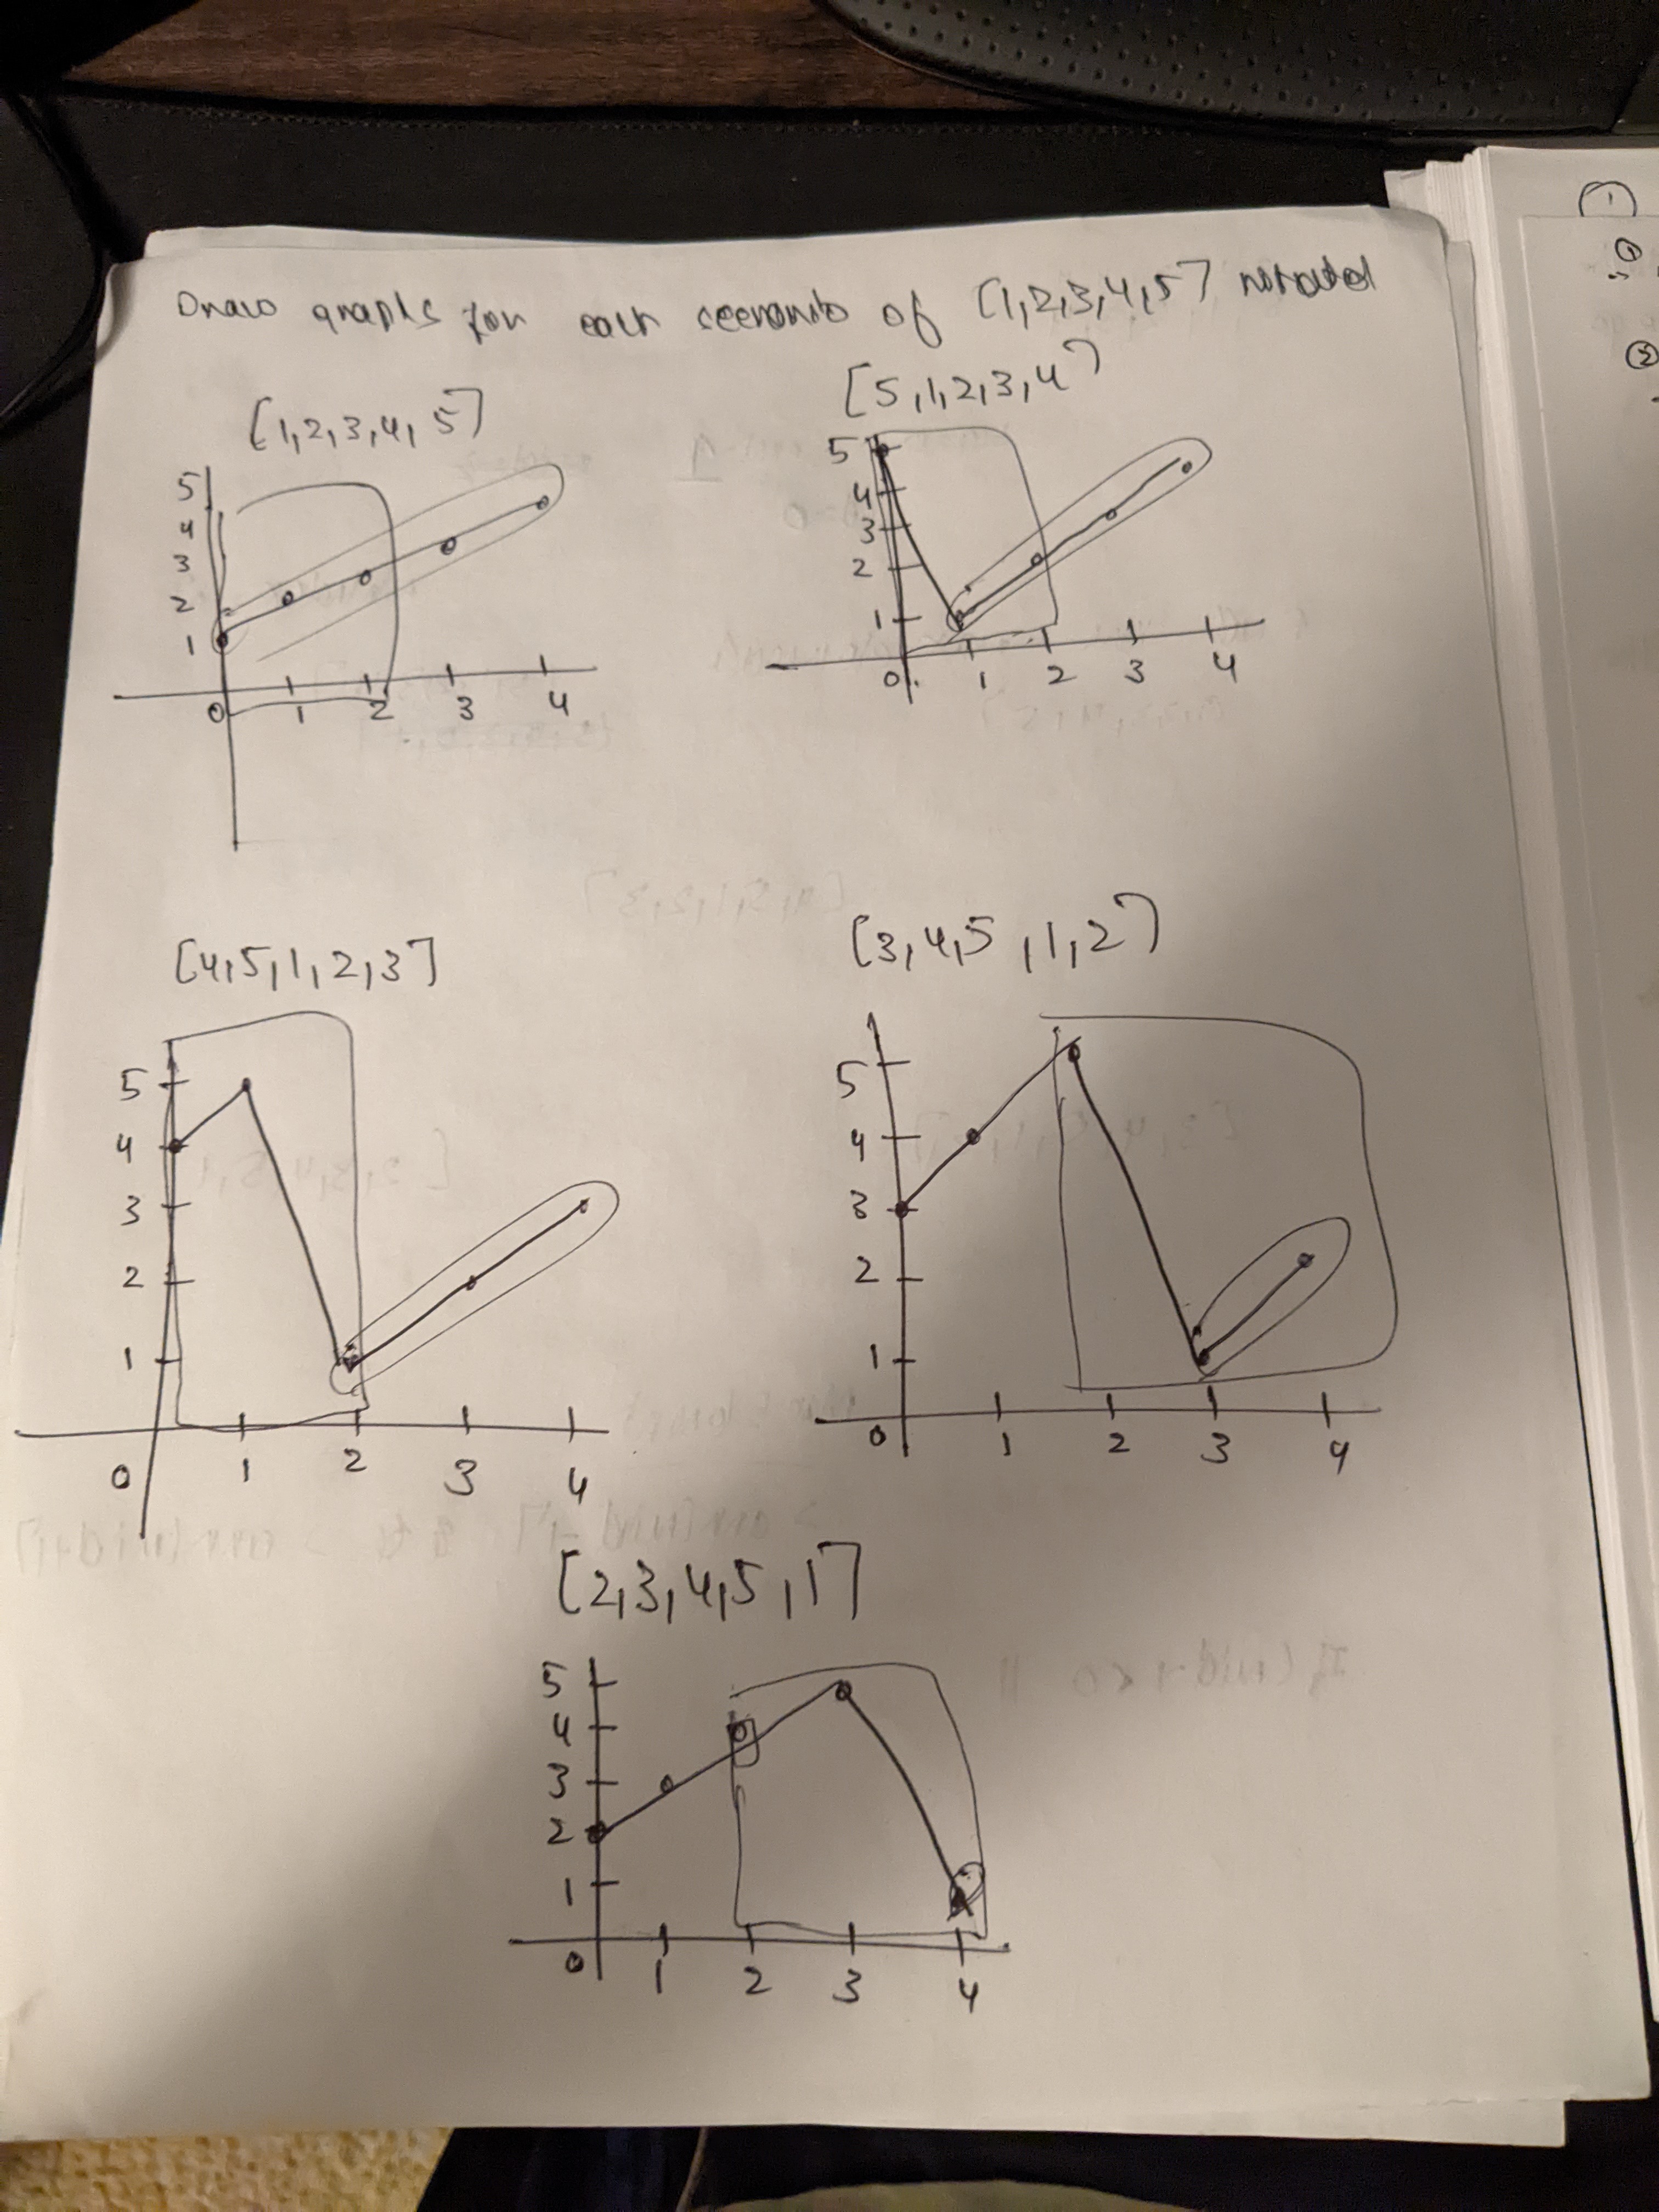 Draw graphs for each scenario of [1,2,3,4,5] rotated
[1,2,3,4,5]
5
4
3
2
1
0 1 2 3 4
[5,1,2,3,4]
5
4
3
2
1
0 1 2 3 4
[4,5,1,2,3]
5
4
3
2
1
0 1 2 3 4
[3,4,5,1,2]
5
4
3
2
1
0 1 2 3 4
[2,3,4,5,1]
5
4
3
2
1
0 1 2 3 4
1
1
2